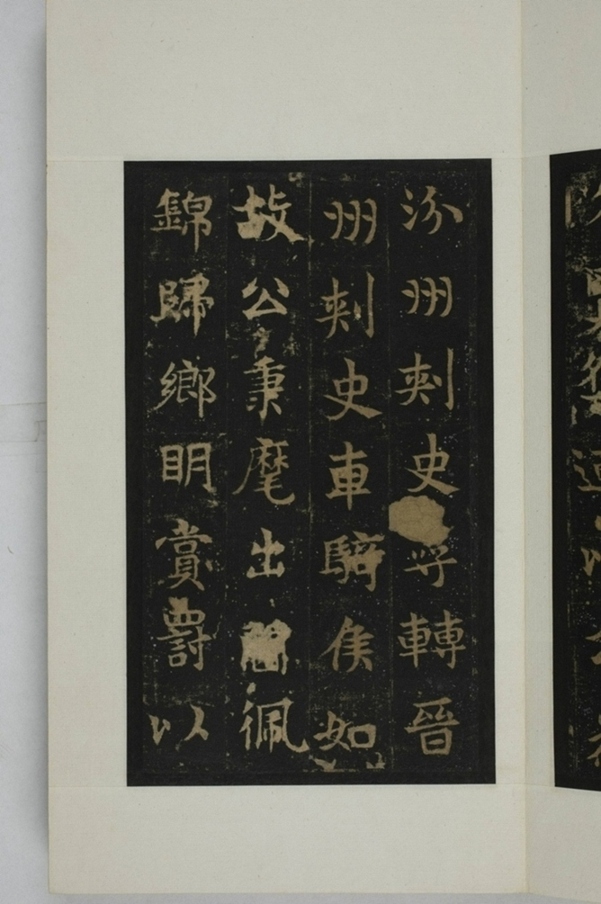 汾州刾史轉晉
州刾史車騎侯如
故公秉麾出佩
錦歸鄉明賞罰以